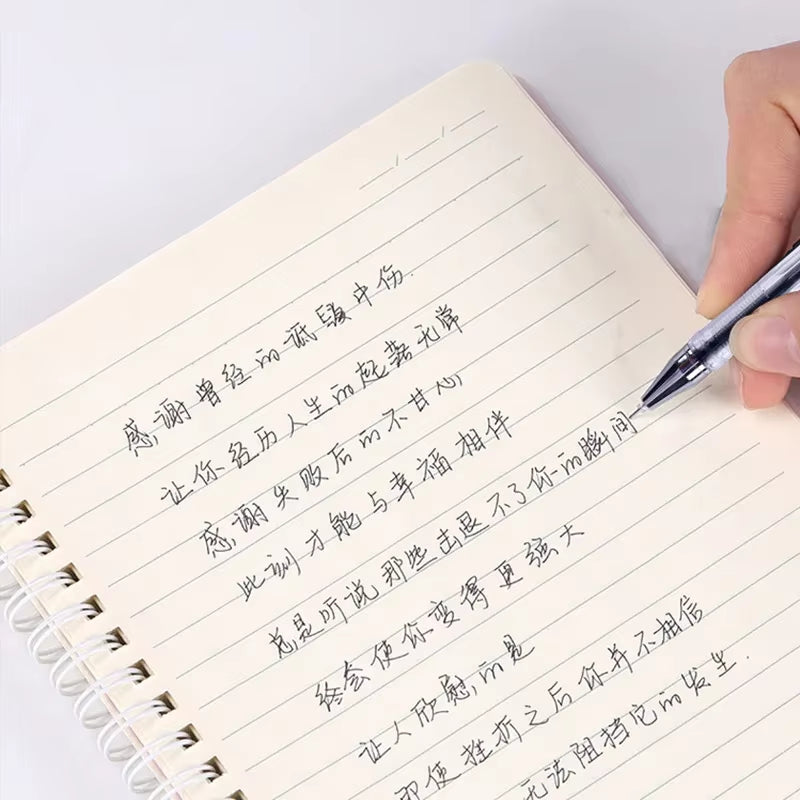 感谢曾经的诋毁中伤.
让你经历人生的起落无常
感谢失败后的不甘心
此刻才能与幸福相伴
总是听说那些击退不了你的瞬间
终会使你变得更强大
让人欣慰的是
即使挫折之后你并不相信
无法阻挡它的发生.